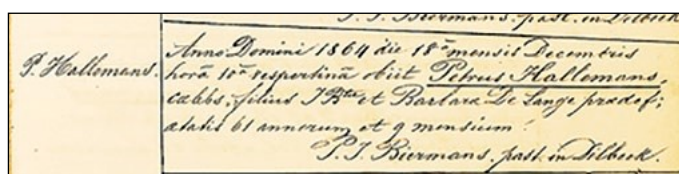 P. J. Biermans. past. in Dilbeek
P. Hallemans.
Anno Domini 1864 die 18ᵃ mensis Decembris
horâ 10ᵃ vespertinâ obiit Petrus Hallemans,
cœlebs, filius J Bᵗᵃ et Barbara De Lange prædef;
ætatis 61 annorum et 9 mensium.
P. J. Biermans. past. in Dilbeek.